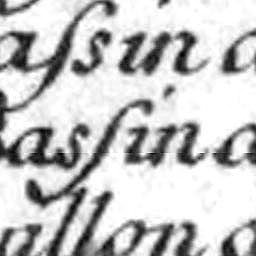 aſsin a
Baſsin a
allon a